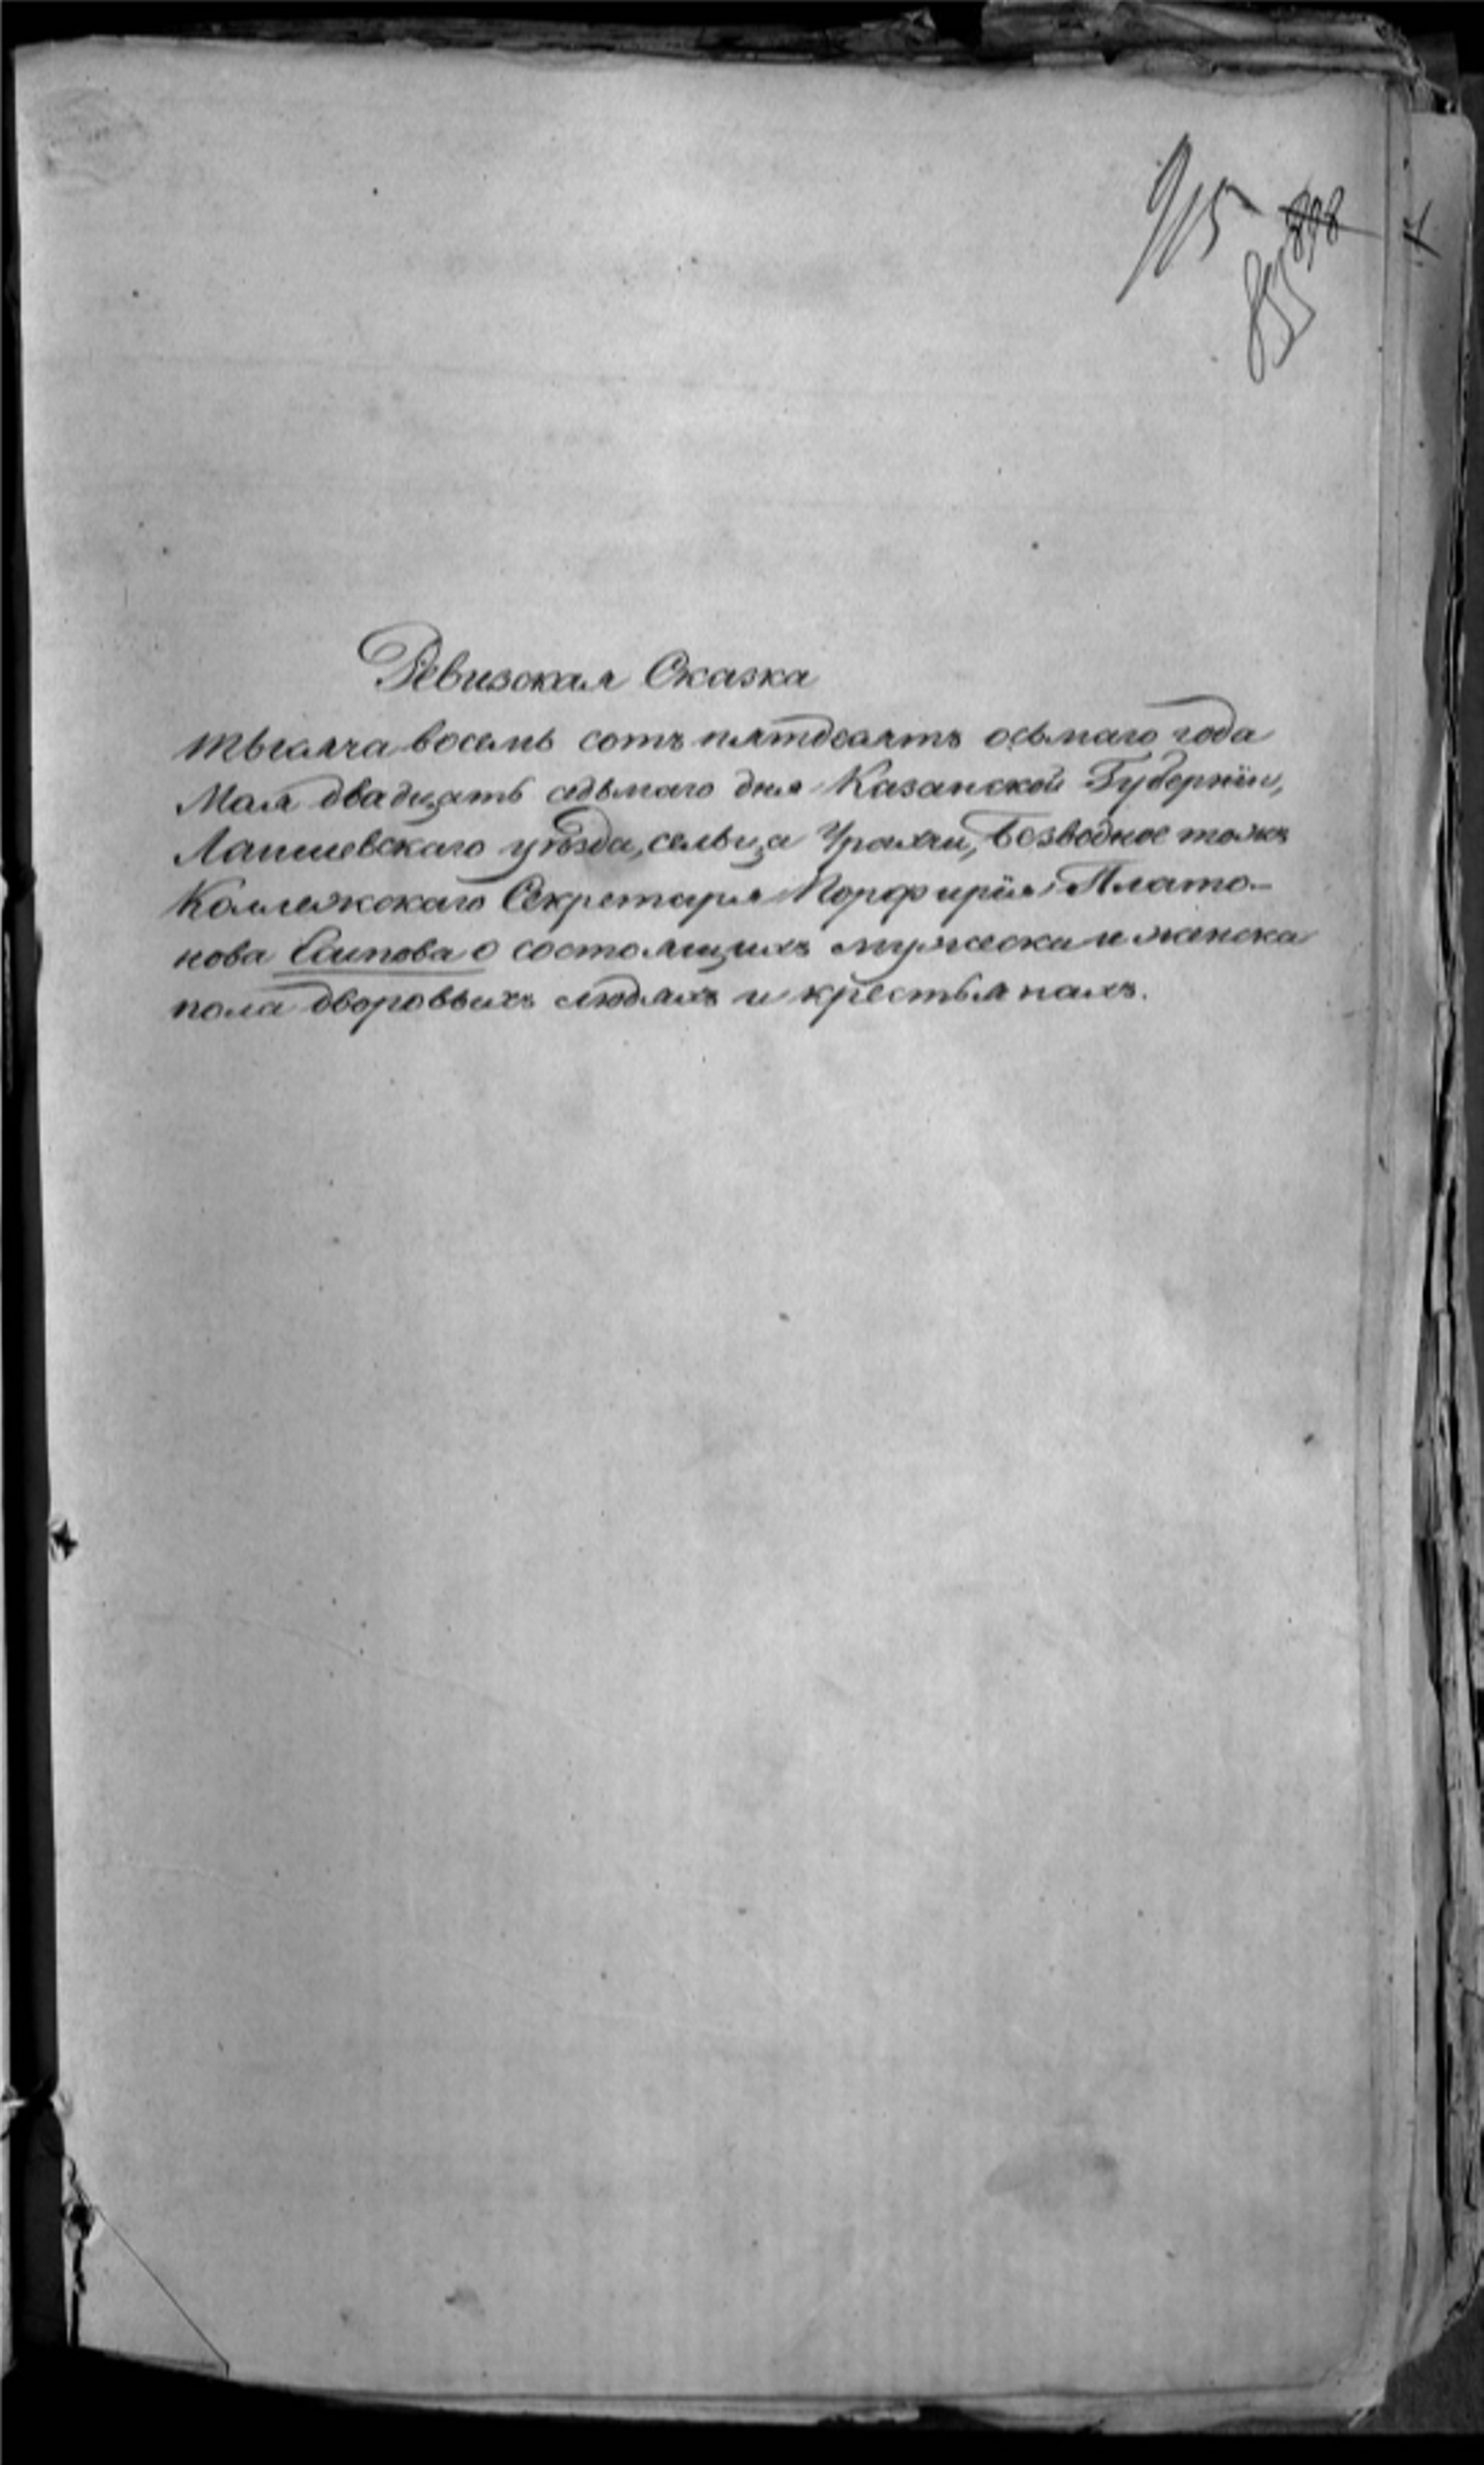 915 898
855
Ревизская Сказка
тысяча восемь сотъ пятдесятъ осьмаго года
Мая двадцать седьмаго дня Казанской Губерніи,
Лаишевскаго уѣзда, сельца Урахчи, Безводное тожъ
Коллежскаго Секретаря Порфирія Плато-
нова Есипова о состоящихъ мужеска и женска
пола дворовыхъ людяхъ и крестьянахъ.